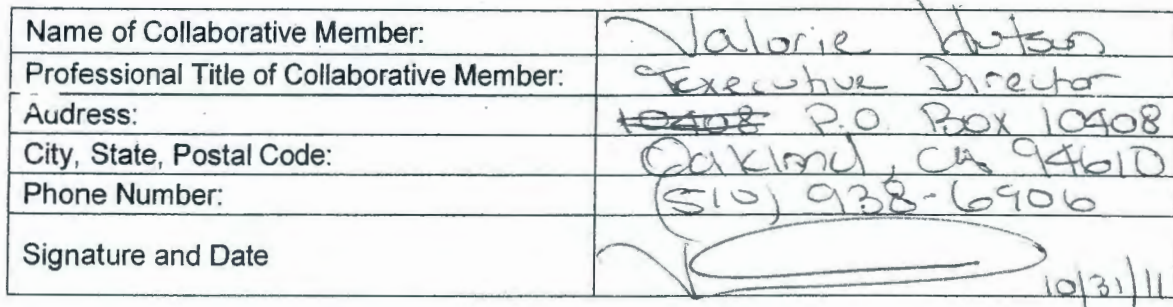 Name of Collaborative Member: Valorie Hutson
Professional Title of Collaborative Member: Executive Director
Audress: 10408 P.O. Box 10408
City, State, Postal Code: Oakland, CA 94610
Phone Number: (510) 938-6906
Signature and Date 10/31/11